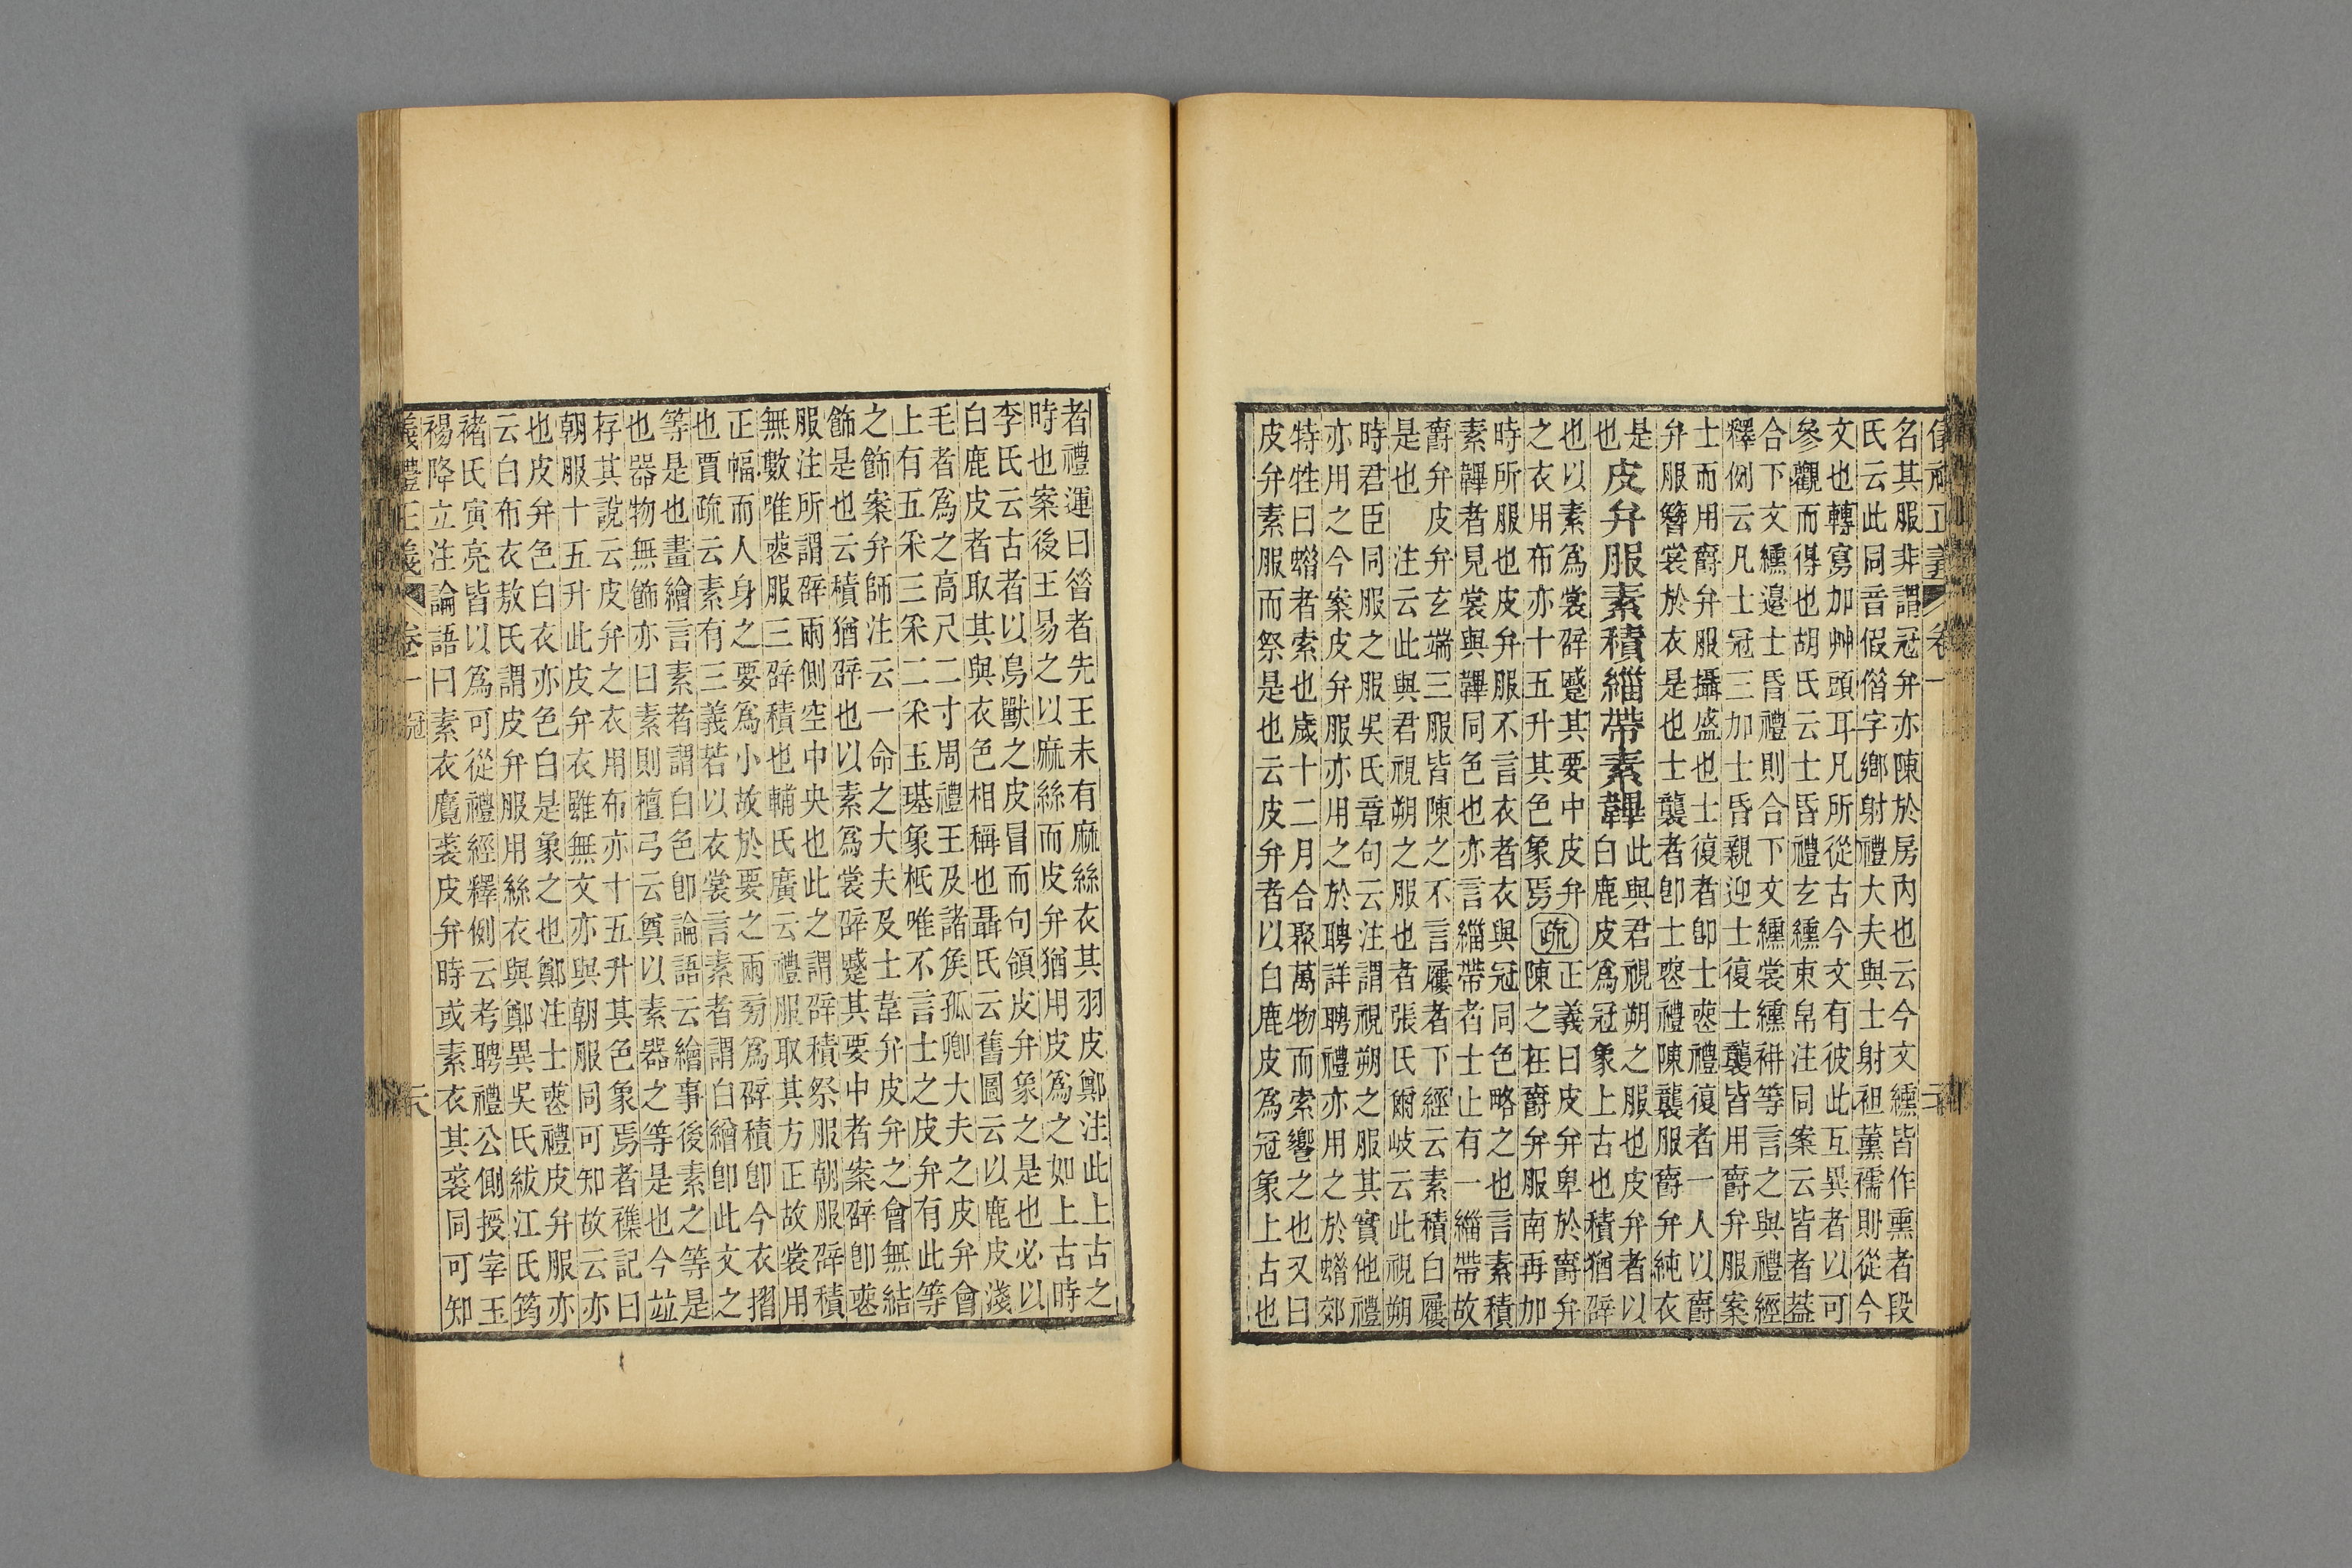 名其服非謂冠弁亦陳於房內也云今文纁皆作熏者段
氏云此同音假借字鄉射禮大夫與士射袒薰襦則從今
文也轉寫加艸頭耳凡所從古今文有彼此互異者以可
參觀而得也胡氏云士昏禮玄纁束帛注同案云皆者葢
合下文纁邊士昏禮則合下文纁裳纁袡等言之與禮經
釋例云凡士冠三加士昏親迎士復士襲皆用爵弁服案
士而用爵弁服攝盛也士復者卽士喪禮復者一人以爵
弁服簪裳於衣是也士襲者卽士喪禮陳襲服爵弁純衣
是也
皮弁服素積緇帶素韠
此與君視朔之服也皮弁者以
白鹿皮爲冠象上古也積猶辟
也以素爲裳辟蹙其要中皮弁
之衣用布亦十五升其色象焉
疏
正義曰皮弁卑於爵弁
陳之在爵弁服南再加
時所服也皮弁服不言衣者衣與冠同色略之也言素積
素韠者見裳與韠同色也亦言緇帶者士止有一緇帶故
爵弁皮弁玄端三服皆陳之不言屨者下經云素積白屨
是也 注云此與君視朔之服也者張氏爾岐云此視朔
時君臣同服之服吳氏章句云注謂視朔之服其實他禮
亦用之今案皮弁服亦用之於聘詳聘禮亦用之於蜡郊
特牲曰蜡者索也歲十二月合聚萬物而索饗之也又曰
皮弁素服而祭是也云皮弁者以白鹿皮爲冠象上古也
者禮運曰昝者先王未有麻絲衣其羽皮鄭注此上古之
時也案後王易之以麻絲而皮弁猶用皮爲之如上古時
李氏云古者以鳥獸之皮冒而句領皮弁象之是也必以
白鹿皮者取其與衣色相稱也聶氏云舊圖云以鹿皮淺
毛者爲之高尺二寸周禮王及諸侯孤卿大夫之皮弁會
上有五采三采二采玉璂象柢唯不言士之皮弁有此等
之飾案弁師注云一命之大夫及士韋弁皮弁之會無結
飾是也云積猶辟也以素爲裳辟蹙其要中者案辟卽喪
服注所謂辟兩側空中央也此之謂辟積祭服朝服辟積
無數唯喪服三辟積也輔氏廣云禮服取其方正故裳用
正幅而人身之要爲小故於要之兩旁爲襞積卽今衣摺
也賈疏云素有三義若以衣裳言素者謂白繒卽此文之
等是也畫繪言素者謂白色卽論語云繪事後素之等是
也器物無飾亦曰素則檀弓云奠以素器之等是也今竝
存其說云皮弁之衣用布亦十五升其色象焉者襍記曰
朝服十五升此皮弁衣雖無文亦與朝服同可知故云亦
也皮弁色白衣亦色白是象之也鄭注士喪禮皮弁服亦
云白布衣敖氏謂皮弁服用絲衣與鄭異吳氏紱江氏筠
褚氏寅亮皆以爲可從禮經釋例云考聘禮公側授宰玉
裼降立注論語曰素衣麑裘皮弁時或素衣其裘同可知
義禮正義 卷一 冠